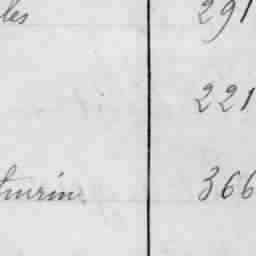 les 291
221
turin 366